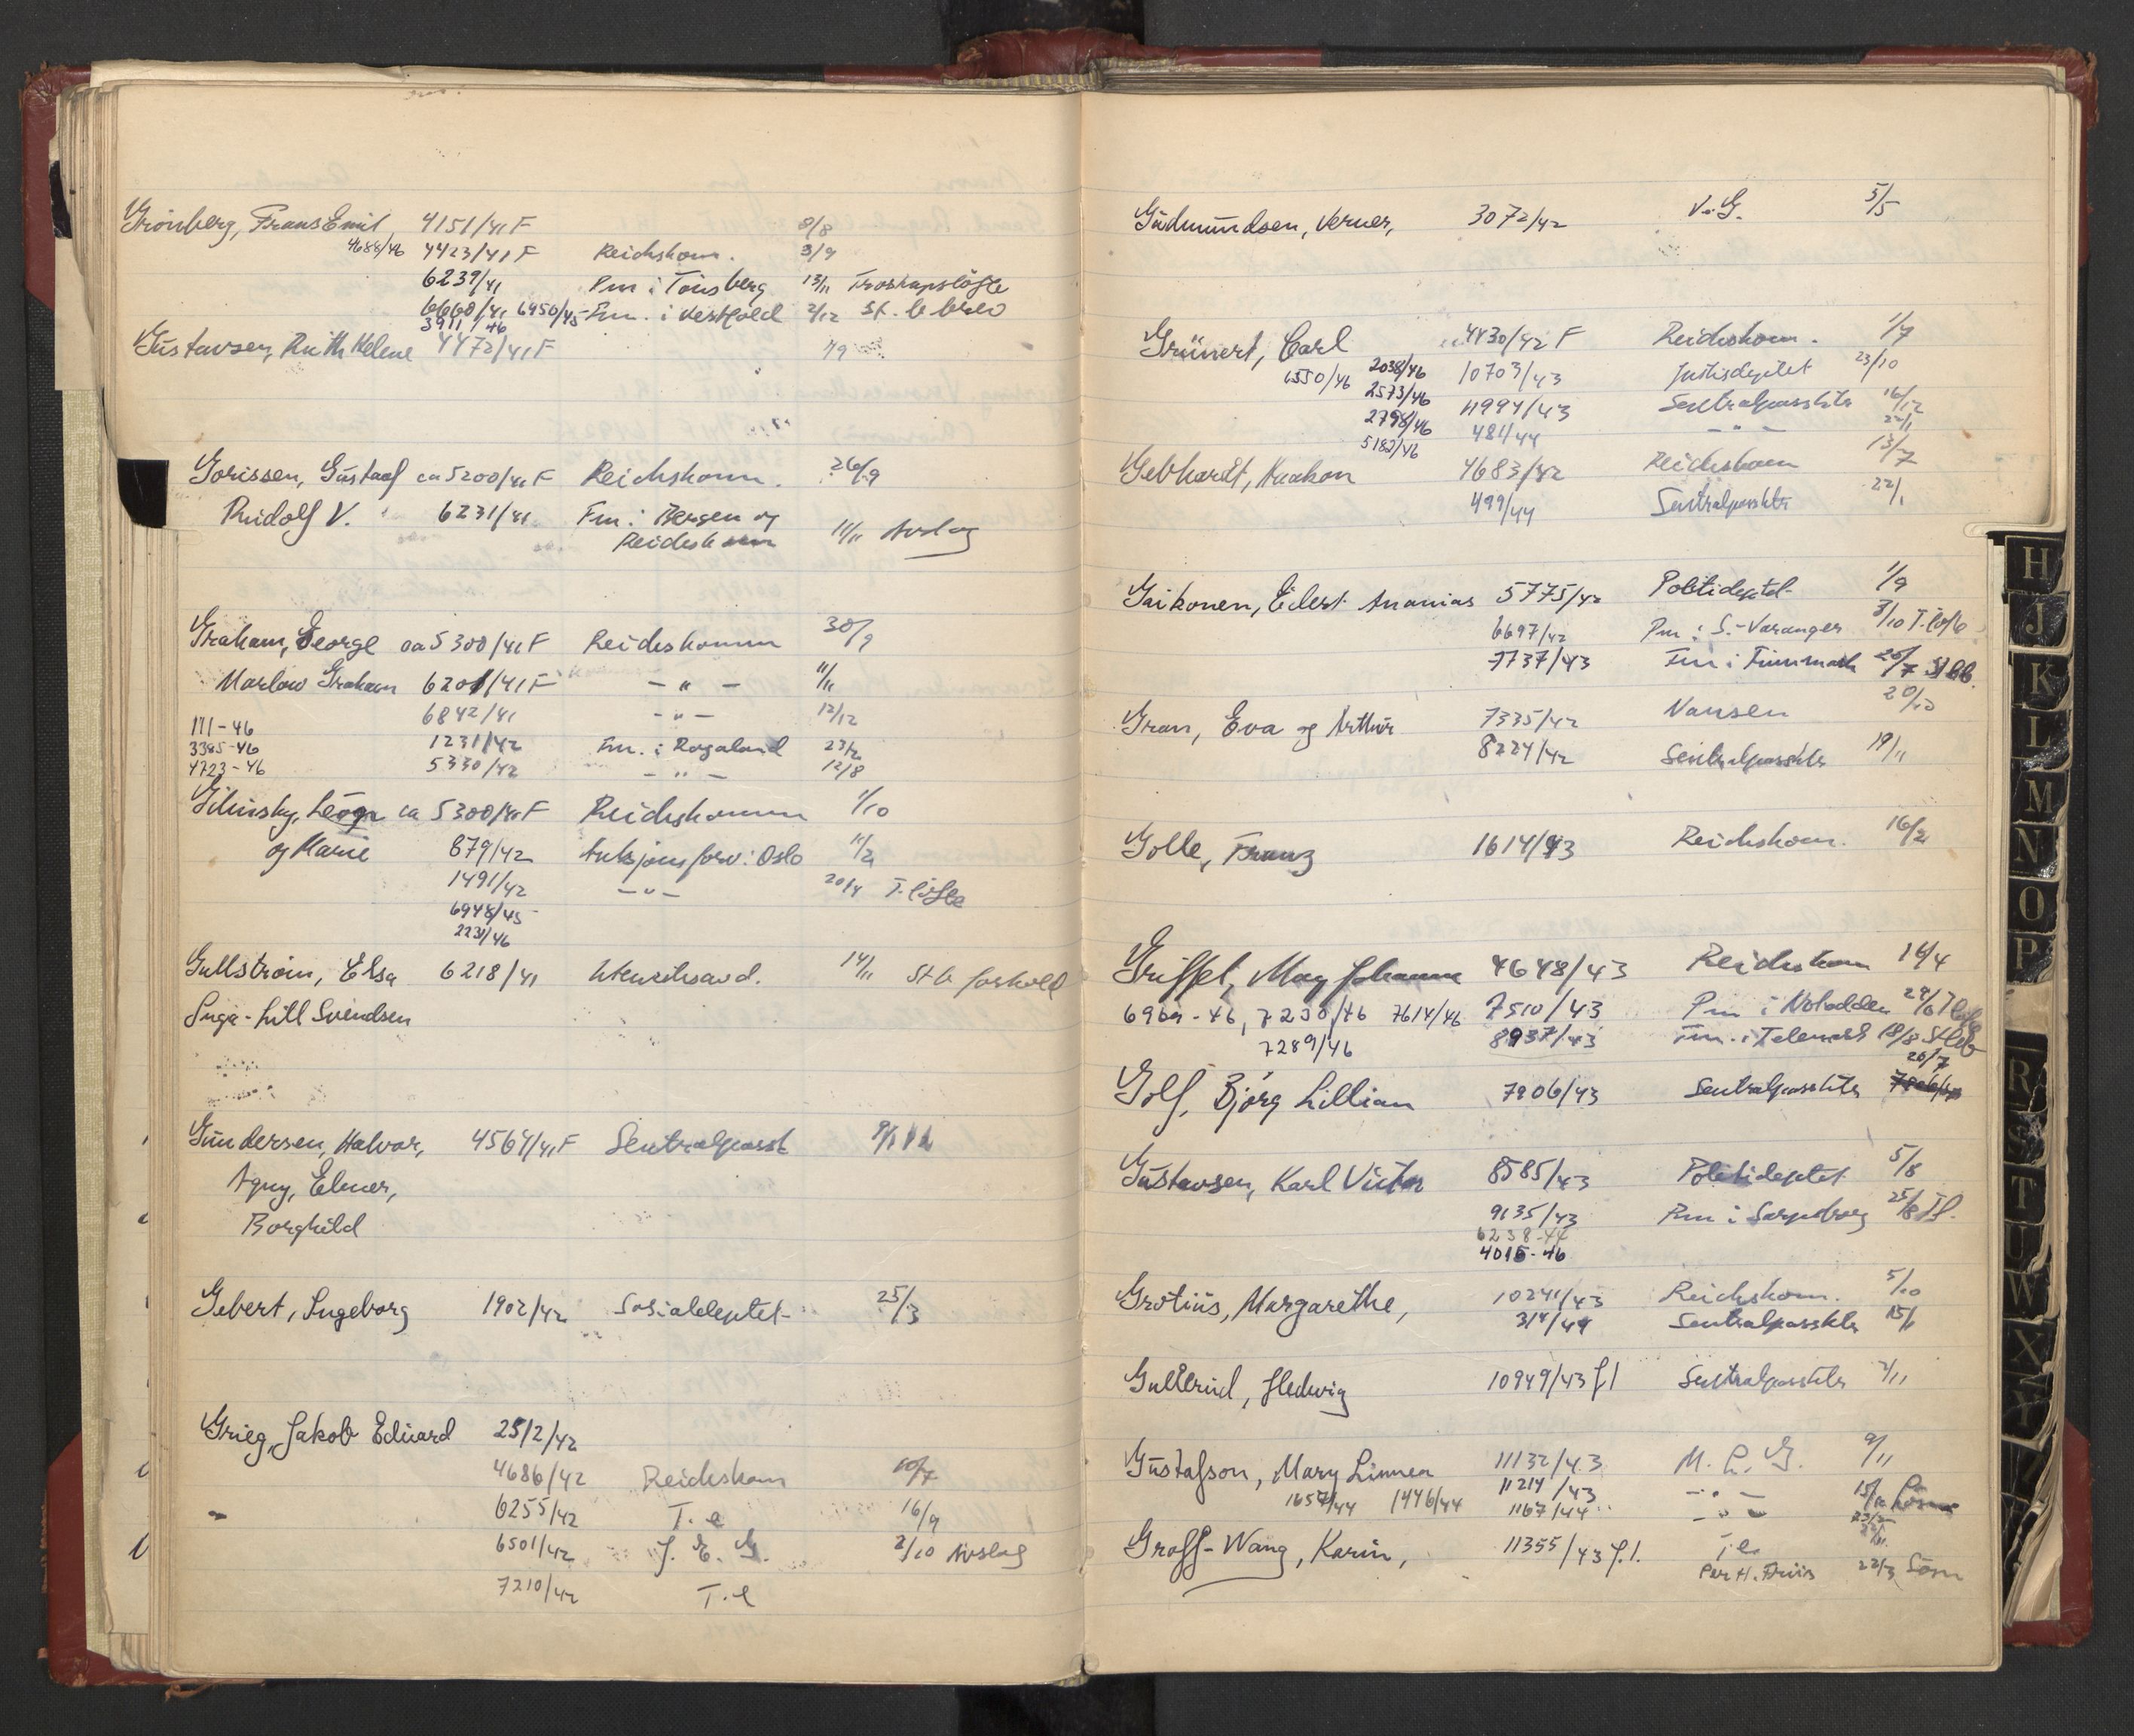 Grönberg, Frans Emil, 4151/41 F 8/8
4688/46 4423/41 F Reichskom. 3/9
6239/41 Pm i Tönsberg 13/11 Troskapslöfte
6660/41 6950/45 Fm. i Vestfold 2/12 St. b brev
3911/46
Gustavsen, Ruth Helene 4472/41 F
Gorissen, Gustaof ca 5200/41 F Reichskomm. 26/9
Rudolf V. 6231/41 Fm i Bergen og
Reichskomm 11/11 Avslag
Graham, George ca 5300/41 F Reichskomm 30/9
Marlow Graham 6201/41 F — " — 11/11
6842/41 — " — 12/12
171-46
3385-46 1231/42 Fm. i Rogaland 23/2
4723-46 5330/42 — " — 12/8
Gilinsky, ca 5300/41 F Reichskomm 1/10
og Marie 879/42 Auksjonsforv. i Oslo 11/2
1491/42 — " — 20/4 T. löfte
6948/45
2231/46
Gullström, Elsa 6218/41 Utenriksavd. 14/11 St b forhold
Inga-Lill Svendsen
Gundersen, Halvor, 4564/41 F Sentralpassk
Agny, Elmer,
Borghild
Gebert, Ingeborg 1902/42 Sosialdeptet 25/3
Grieg, Jakob Eduard 25/2/42
4686/42 Reichskom 10/7
6255/42 T. e 16/9
6501/42 J. E. G. 2/10 Avslag
7210/42 T. e
Gudmundsen, Verner, 3072/42 V. G. 5/5
Grünert, Carl 4430/42 F Reichskom. 1/7
6550/46 2038/46 10703/43 Justisdeptet 23/10
2573/46 11994/43 Sentralpassktr 16/12
2798/46 481/44 — " — 22/1
5182/46
Gebhardt, Haakon 4683/42 Reichskom 13/7
499/44 Sentralpassktr 22/1
Gaikonen, Eilert Ananias 5775/42 Politideptet 1/9
6697/42 Pm i S.-Varanger
7737/43 Fm i Finnmark 20/7 St bb.
Gran, Eva og Arthur 7335/42 Nansen 20/10
8224/42 Sentralpassktr 19/11
Golle, Franz 1614/43 Reichskom. 16/2
Griffel, May Johanne 4648/43 Reichskom 14/4
6969-46, 7230/46 7614/46 7510/43 Pm i Notodden
7289/46 8937/43 Fm. i Telemark 18/8 St bb
Golf, Bjørg Lillian 7906/43 Sentralpassktr 20/7
Gustavsen, Karl Victor 8585/43 Politideptet 5/8
9135/43 Pm i Sarpsborg 25/8 Tl.
6238-44
4015-46
Grotius, Margarethe, 10241/43 Reichskom. 5/10
314/44 Sentralpassktr 15/1
Gullerud, Hedwig 10949/43 fl Sentralpassktr 2/11
Gustafson, Mary Linnea 11132/43 M. L. G. 9/11
11214/43 — " —
1657/44 1446/44 1167/44 — " —
Groff-Wang, Karin, 11355/43 f.l. T. e.
22/3 Søsm
H
J
K
L
M
N
O
P
R
S
T
U
W
X
Y